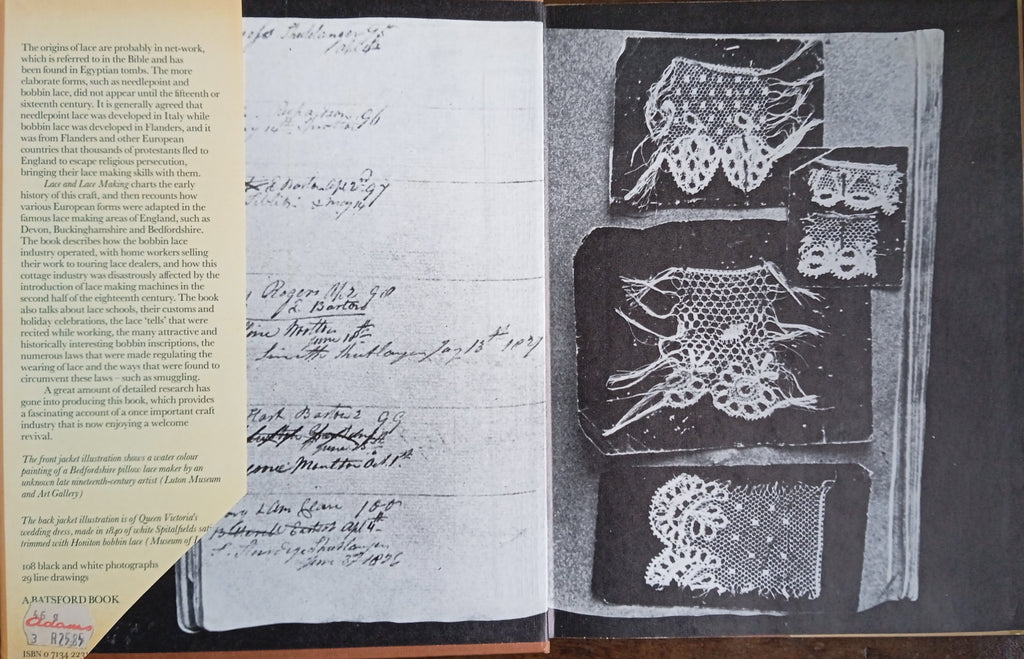 The origins of lace are probably in net-work,
which is referred to in the Bible and has
been found in Egyptian tombs. The more
elaborate forms, such as needlepoint and
bobbin lace, did not appear until the fifteenth or
sixteenth century. It is generally agreed that
needlepoint lace was developed in Italy while
bobbin lace was developed in Flanders, and it
was from Flanders and other European
countries that thousands of protestants fled to
England to escape religious persecution,
bringing their lace making skills with them.
Lace and Lace Making charts the early
history of this craft, and then recounts how
various European forms were adapted in the
famous lace making areas of England, such as
Devon, Buckinghamshire and Bedfordshire.
The book describes how the bobbin lace
industry operated, with home workers selling
their work to touring lace dealers, and how this
cottage industry was disastrously affected by the
introduction of lace making machines in the
second half of the eighteenth century. The book
also talks about lace schools, their customs and
holiday celebrations, the lace 'tells' that were
recited while working, the many attractive and
historically interesting bobbin inscriptions, the
numerous laws that were made regulating the
wearing of lace and the ways that were found to
circumvent these laws – such as smuggling.
A great amount of detailed research has
gone into producing this book, which provides
a fascinating account of a once important craft
industry that is now enjoying a welcome
revival.
The front jacket illustration shows a water colour
painting of a Bedfordshire pillow lace maker by an
unknown late nineteenth-century artist (Luton Museum
and Art Gallery)
The back jacket illustration is of Queen Victoria's
wedding dress, made in 1840 of white Spitalfields
trimmed with Honiton bobbin lace (Museum of
108 black and white photographs
29 line drawings
A BATSFORD BOOK
Adams
3 R25.85
ISBN 0 7134
95
96
97
Rogers
98
June 18th
13th
99
100
1826